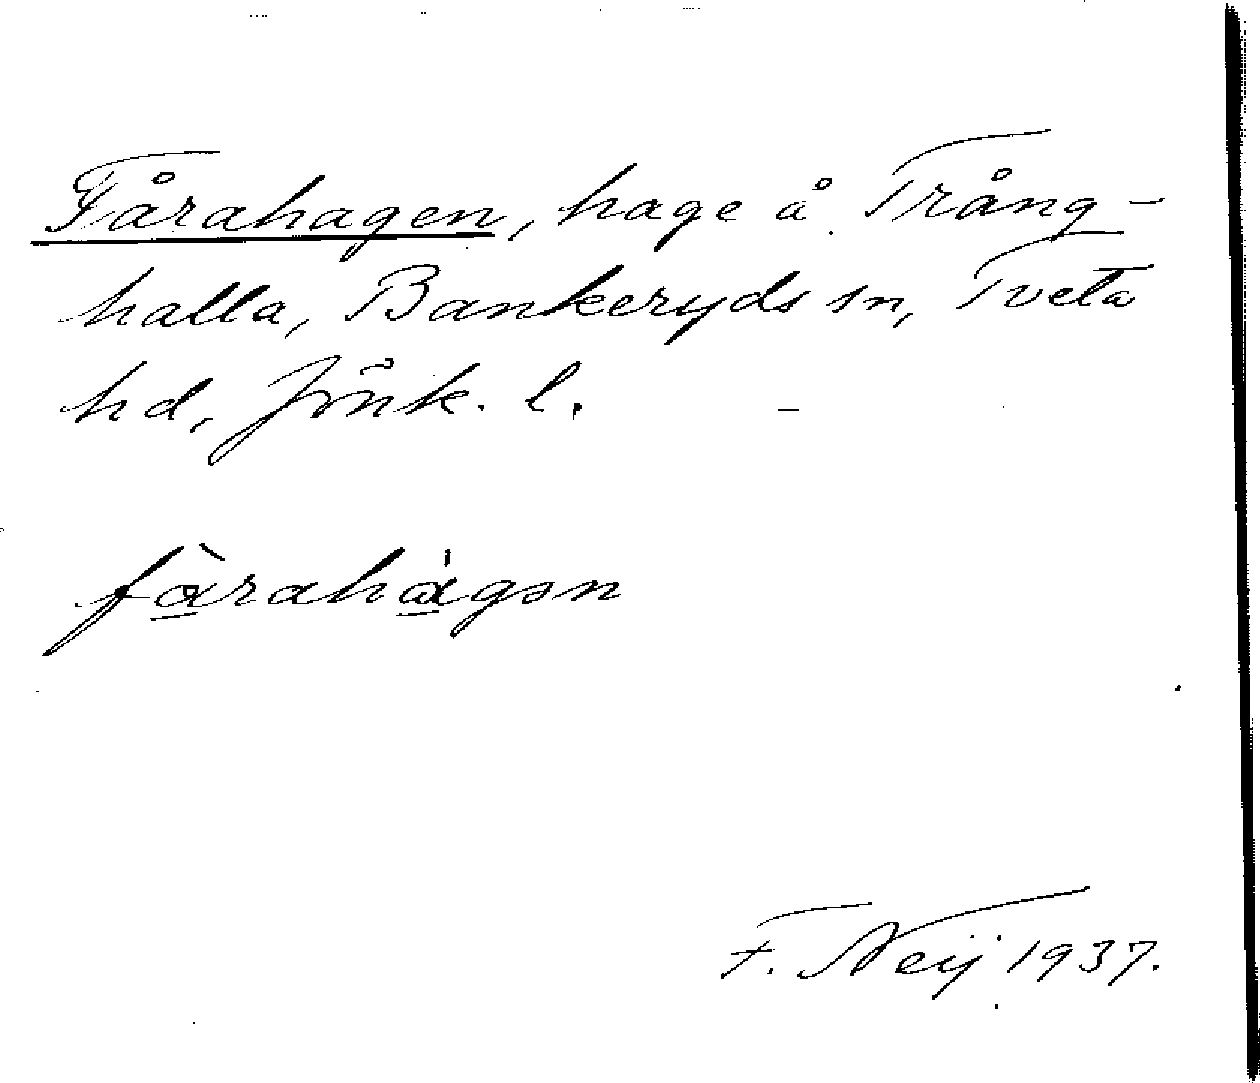 Fårahagen, hage å Trång-
halla, Bankeryds sn, Tveta
hd, Jönk. l.
fàrahàgən
F. Neij 1937.